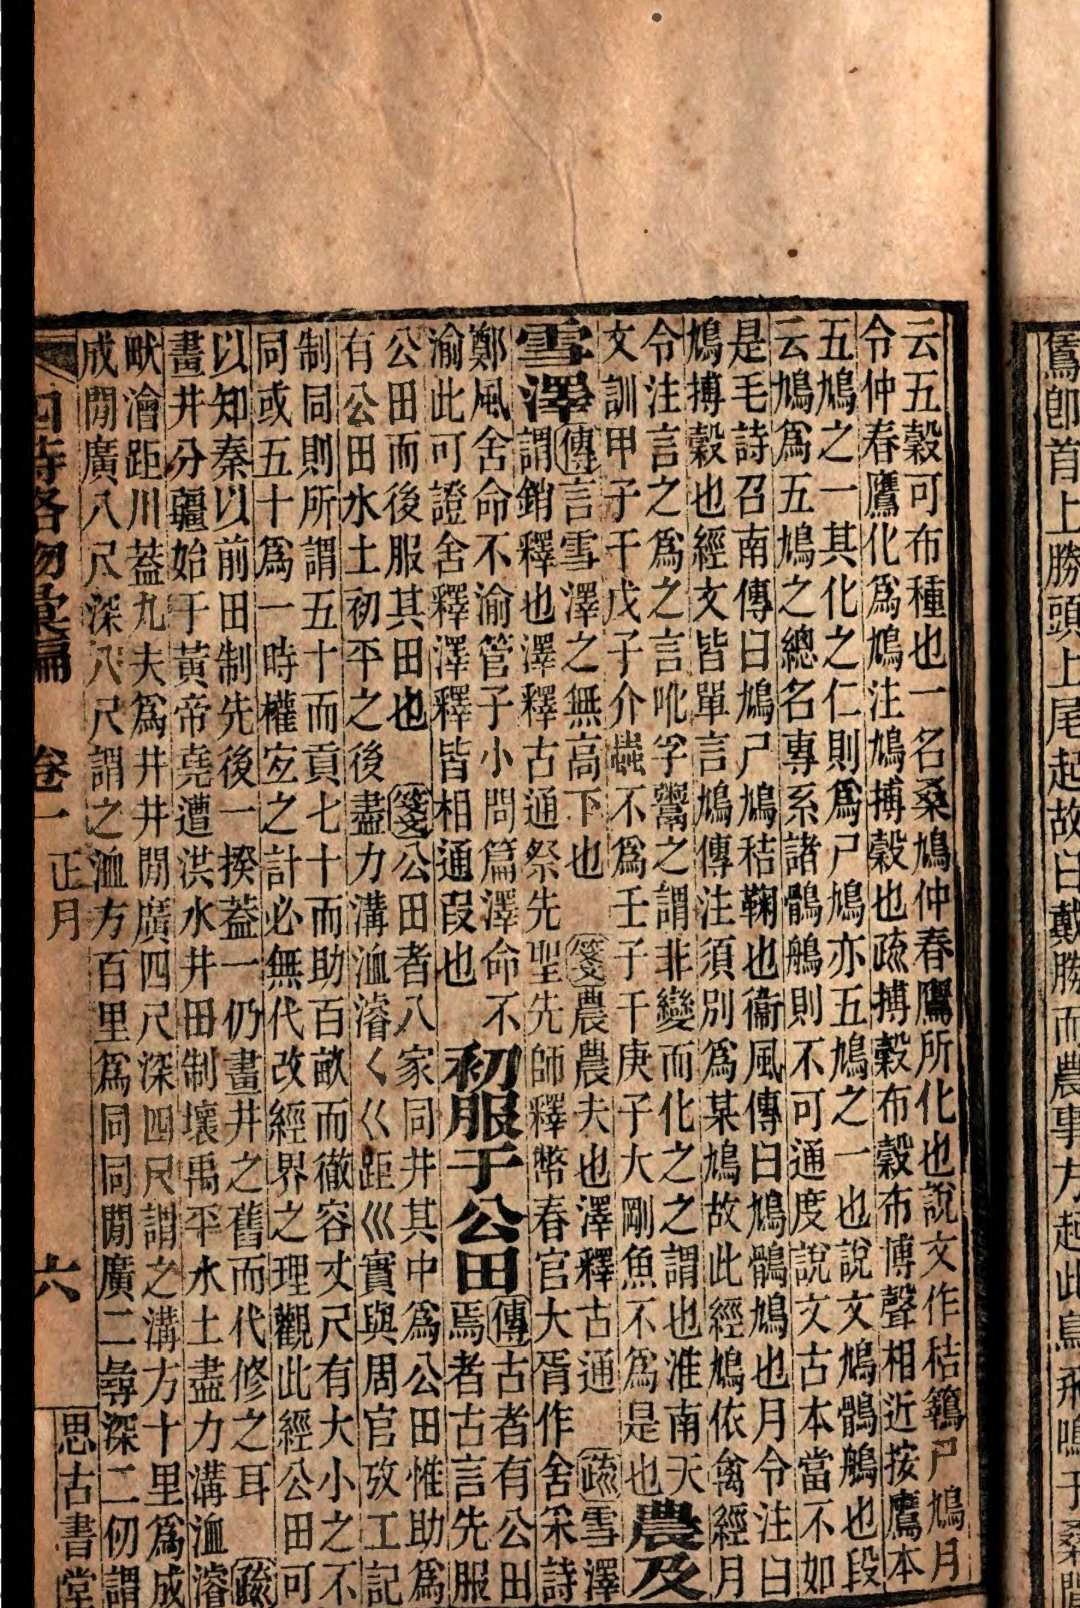 即首上勝頭上尾起故曰戴勝而農事方起此鳥飛鳴于桑間
云五穀可布種也一名桑鳩仲春鷹所化也說文作秸鵴尸鳩月
令仲春鷹化爲鳩注鳩搏穀也疏搏穀布穀布博聲相近按鷹本
五鳩之一其化之仁則爲尸鳩亦五鳩之一也說文鳩鶻鵃也段
云鳩爲五鳩之總名專系諸鶻鵃則不可通度說文古本當不如
是毛詩召南傳曰鳩尸鳩秸鞠也衞風傳曰鳩鶻鳩也月令注曰
鳩搏穀也經文皆單言鳩傳注須別爲某鳩故此經鳩依禽經月
令注言之爲之言吪孚鬻之謂非變而化之之謂也淮南天
文訓甲子干戊子介蟲不爲壬子干庚子大剛魚不爲是也
農及
雪澤
傳言雪澤之無高下也 箋農農夫也澤釋古通 疏雪澤
謂銷釋也澤釋古通祭先聖先師釋幣春官大胥作舍采詩
鄭風舍命不渝管子小問篇澤命不
渝此可證舍釋澤釋皆相通叚也
初服于公田
傳古者有公田
焉者古言先服
公田而後服其田也 箋公田者八家同井其中爲公田惟助爲
有公田水土初平之後盡力溝洫濬く巜距巛實與周官攷工記
制同則所謂五十而貢七十而助百畝而徹容丈尺有大小之不
同或五十爲一時權宐之計必無代改經界之理觀此經公田可
以知秦以前田制先後一揆蓋一仍畫井之舊而代修之耳 疏
畫井分疆始于黃帝堯遭洪水井田制壞禹平水土盡力溝洫濬
畎澮距川蓋九夫爲井井閒廣四尺深四尺謂之溝方十里爲成
成閒廣八尺深八尺謂之洫方百里爲同同閒廣二尋深二仞謂
卷一 正月 六 思古書堂